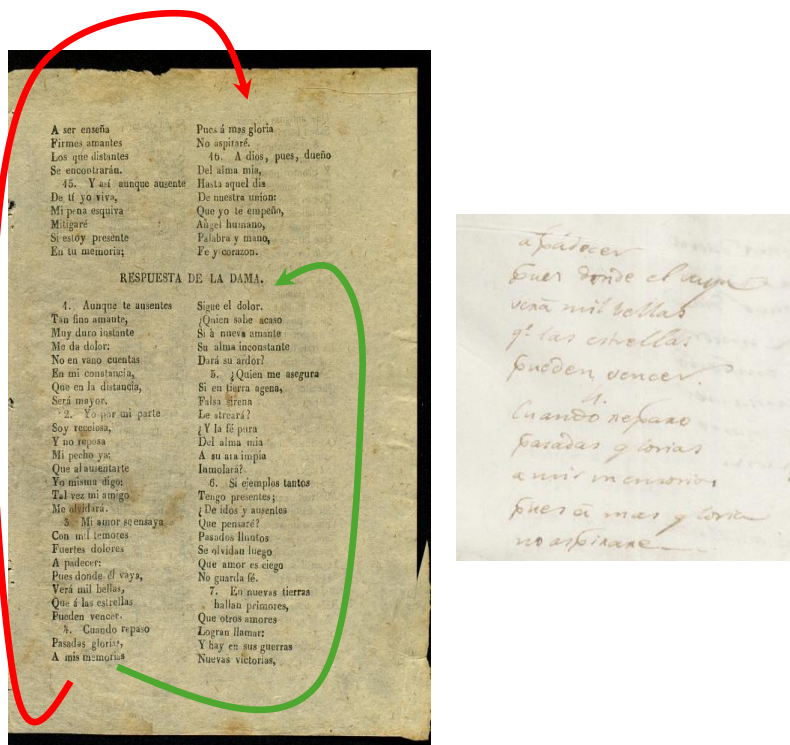 A ser enseña
Firmes amantes
Los que distantes
Se encontrarán.
15. Y así aunque ausente
De tí yo viva,
Mi pena esquiva
Mitigaré
Si estoy presente
En tu memoria;
Pues á mas gloria
No aspiraré.
16. A dios, pues, dueño
Del alma mia,
Hasta aquel dia
De nuestra union:
Que yo te empeño,
Angel humano,
Palabra y mano,
Fe y corazon.
RESPUESTA DE LA DAMA.
1. Aunque te ausentes
Tan fino amante,
Muy duro instante
Me da dolor:
No en vano cuentas
En mi constancia,
Que en la distancia,
Será mayor.
2. Yo por mi parte
Soy recelosa,
Y no reposa
Mi pecho ya:
Que al ausentarte
Yo misma digo:
Tal vez mi amigo
Me olvidará.
3. Mi amor se ensaya
Con mil temores
Fuertes dolores
A padecer:
Pues donde él vaya,
Verá mil bellas,
Que á las estrellas
Pueden vencer.
4. Cuando repaso
Pasadas glorias,
A mis memorias
Sigue el dolor.
¿Quien sabe acaso
Si à nueva amante
Su alma inconstante
Dará su ardor?
5. ¿Quien me asegura
Si en tierra agena,
Falsa sirena
Le atraerá?
¿Y la fé pura
Del alma mia
A su ara impia
Inmolará?
6. Si ejemplos tantos
Tengo presentes;
¿De idos y ausentes
Que pensaré?
Pasados llantos
Se olvidan luego
Que amor es ciego
No guarda fé.
7. En nuevas tierras
hallan primores,
Que otros amores
Logran llamar:
Y hay en sus guerras
Nuevas victorias,
a padecer
pues donde el vaya
verá mil vellas
q.e las estrellas
pueden vencer.
4.
Cuando repaso
pasadas glorias
a mis memorias
pues á mas gloria
no aspirare